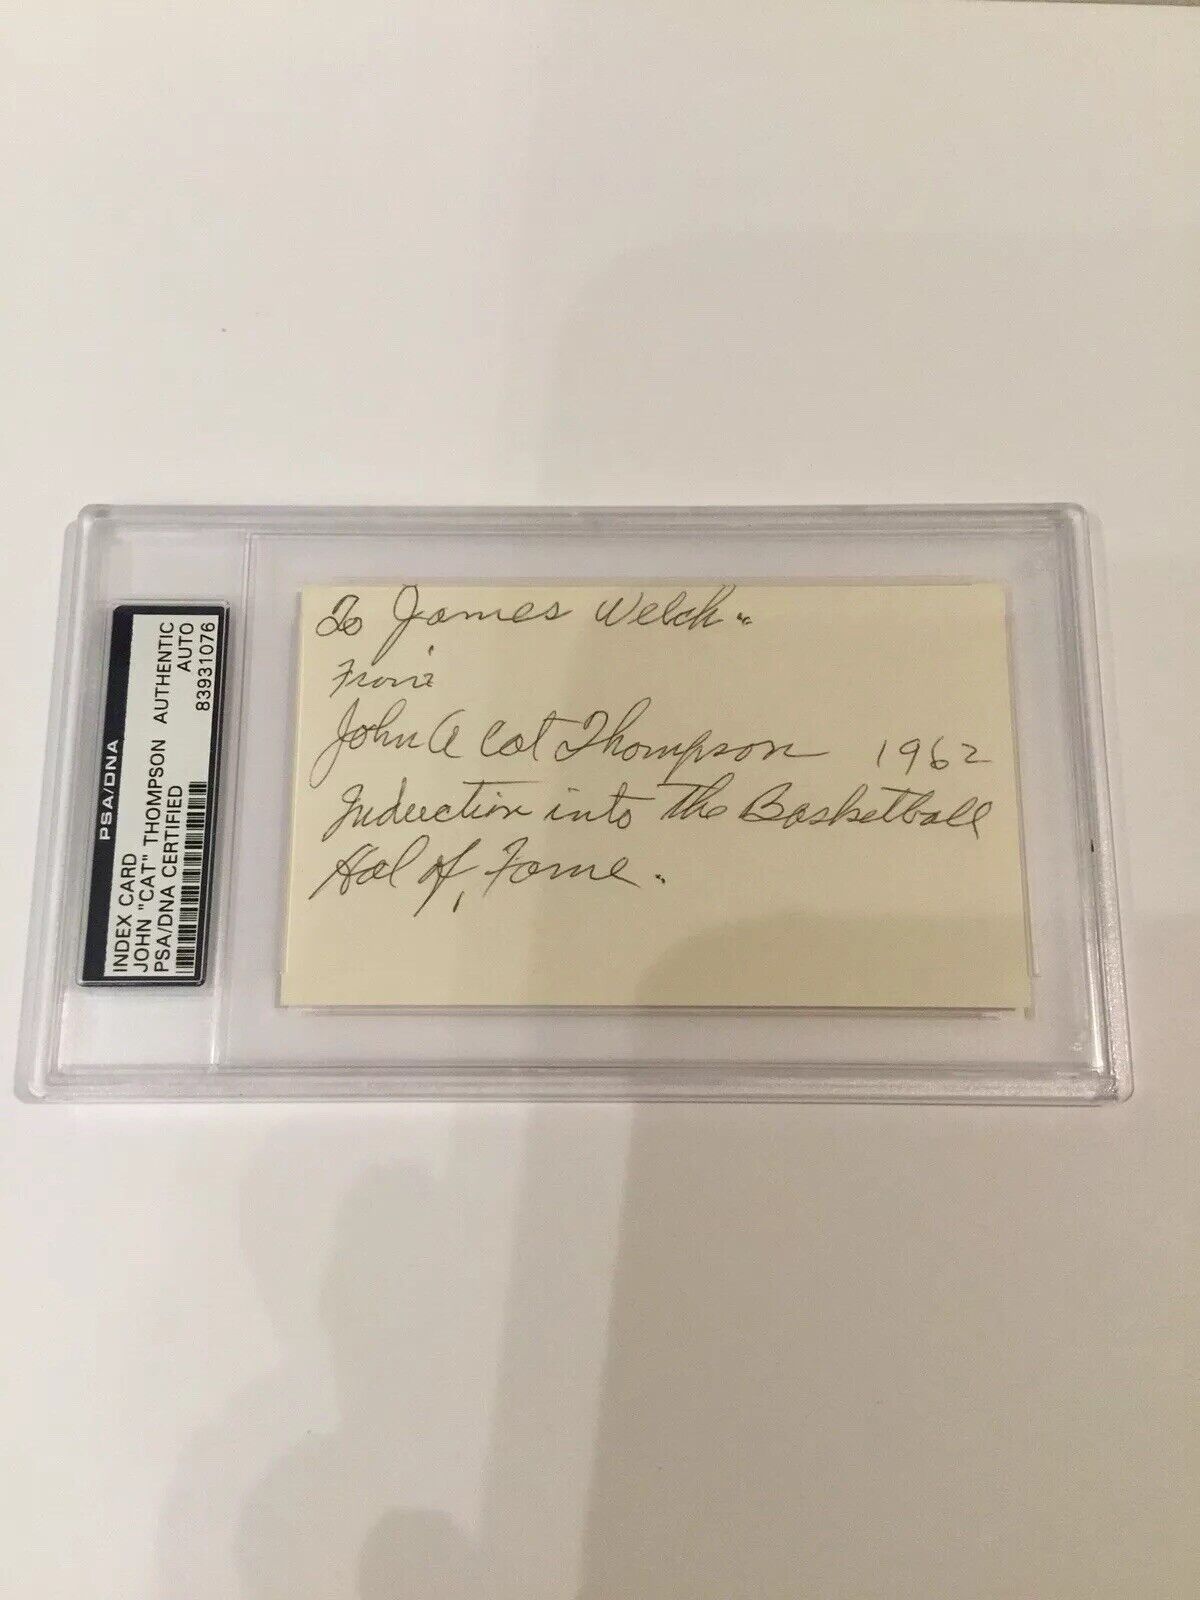 PSA/DNA
INDEX CARD
JOHN "CAT" THOMPSON AUTHENTIC
PSA/DNA CERTIFIED AUTO
83931076
To James Welch
From
John A Cat Thompson 1962
Induction into The Basketball
Hal of, Fame.